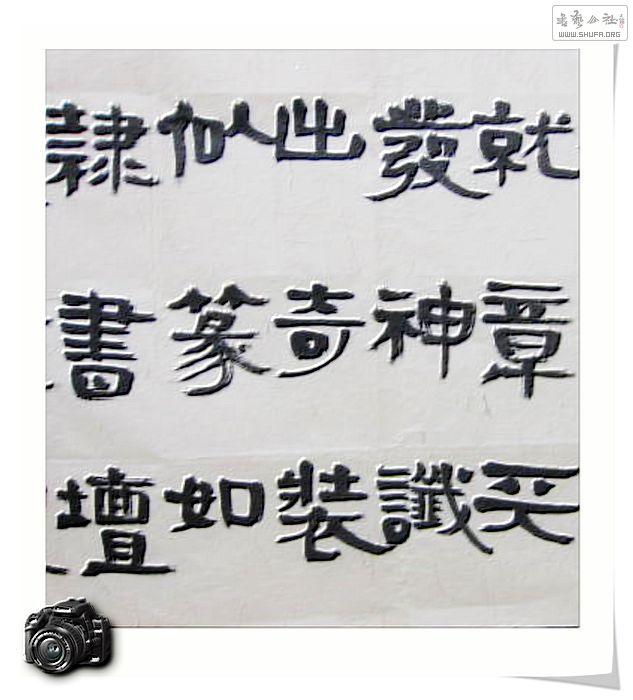 就章天
發神讖
出奇裝
似篆如
隸書壇
书艺公社
WWW.SHUFA.ORG